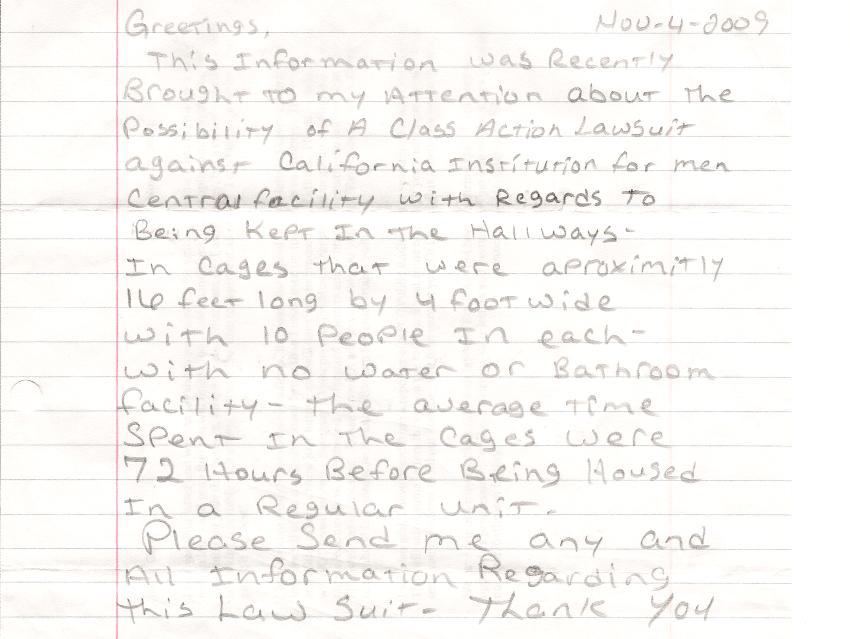 Greetings, Nov-4-2009
This Information was Recently
Brought to my Attention about the
Possibility of A Class Action Lawsuit
against California Institution for men
Central facility with Regards to
Being Kept In the Hallways-
In Cages that were aproximitly
16 feet long by 4 foot wide
with 10 People In each-
with no water or Bathroom
facility- the average time
Spent In The Cages were
72 Hours Before Being Housed
In a Regular unit.
Please Send me any and
All Information Regarding
this Law Suit- Thank You